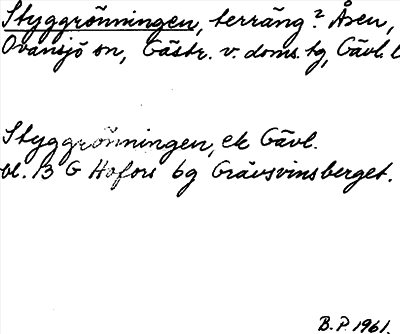 Styggrönningen, terräng? Åsen,
Ovansjö sn, Gästr. v. doms. tg, Gävl. l
Styggrönningen, ek Gävl.
bl. 13 G Hofors 6g Grävsvinsberget.
B.P. 1961.